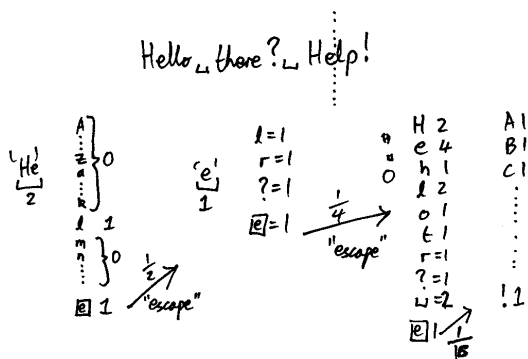 Hello␣ there?␣ Help!
'He'
2
A
z
a
k
} 0
l 1
m
n
} 0
e 1
1/2
"escape"
'e'
1
l=1
r=1
?=1
e=1
1/4
"escape"
" "
0
H 2
e 4
h 1
l 2
o 1
t 1
r=1
?=1
␣=2
e 1
A 1
B 1
C 1
! 1